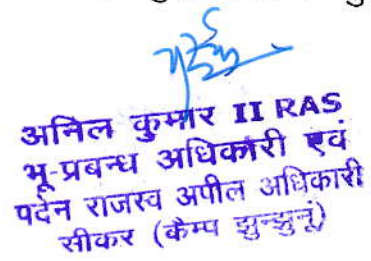 अनिल कुमार II RAS
भू-प्रबन्ध अधिकारी एवं
पदेन राजस्व अपील अधिकारी
सीकर (कैम्प झुन्झुनू)